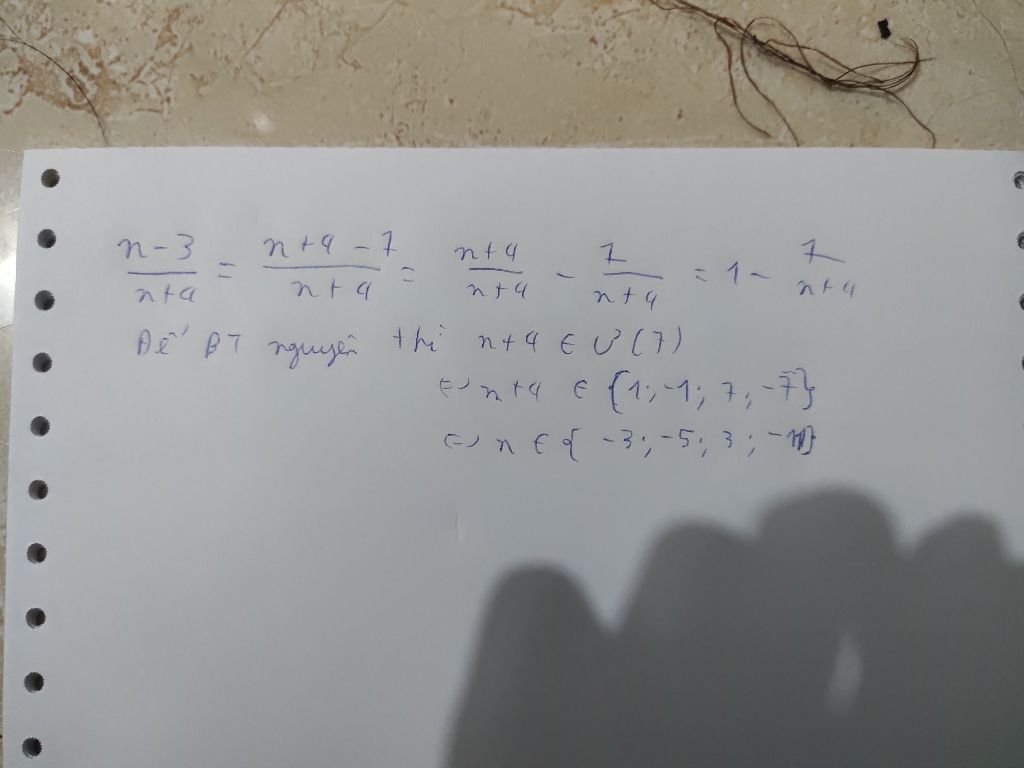 n-3/n+4 = n+4-7/n+4 = n+4/n+4 - 7/n+4 = 1 - 7/n+4
Để BT nguyên thì n+4 ∈ Ư(7)
⇔ n+4 ∈ {1; -1; 7; -7}
⇔ n ∈ { -3; -5; 3; -11}